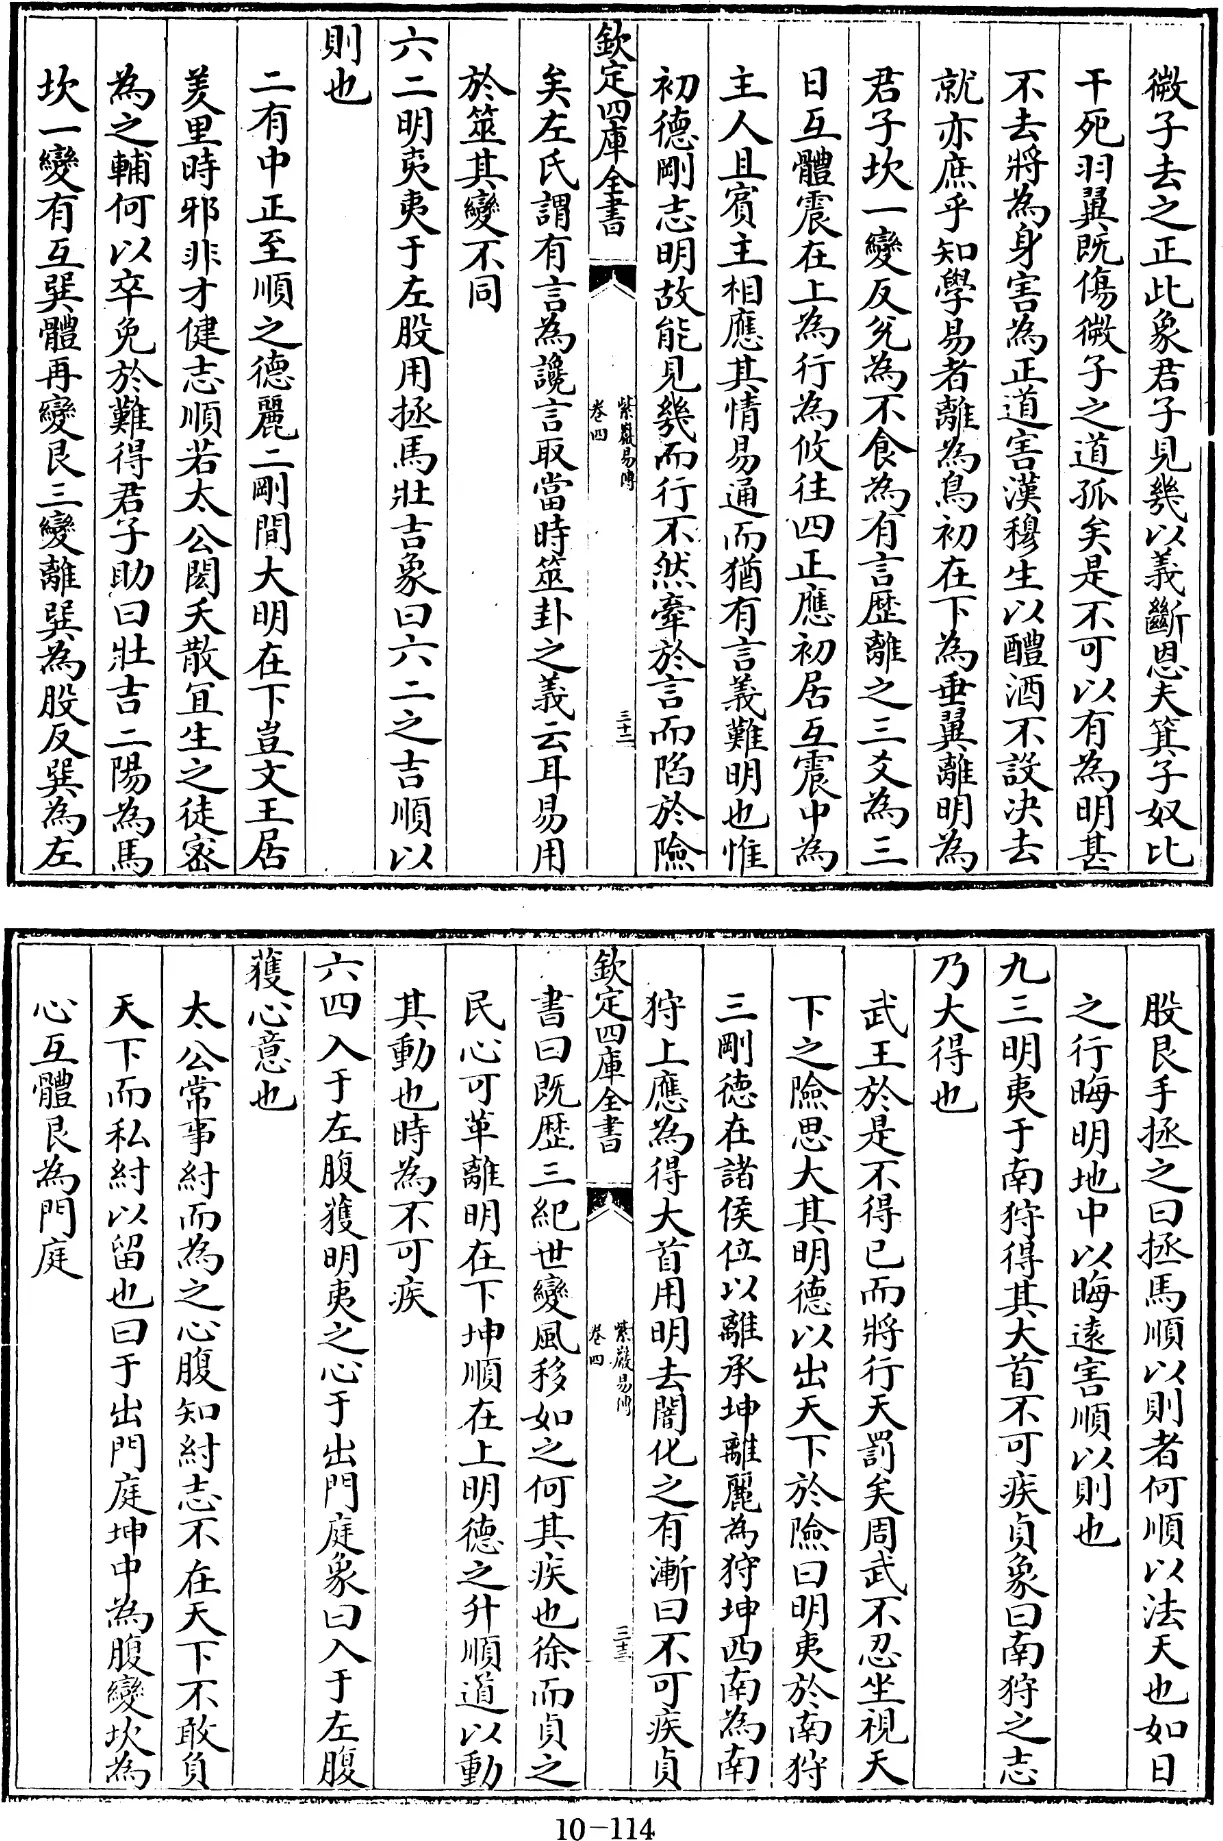 微子去之正此象君子見幾以義斷恩夫箕子奴比
干死羽翼既傷微子之道孤矣是不可以有為明甚
不去將為身害為正道害漢穆生以醴酒不設決去
就亦庶乎知學易者離為鳥初在下為垂翼離明為
君子坎一變反兊為不食為有言歴離之三爻為三
日互體震在上為行為攸往四正應初居互震中為
主人且賓主相應其情易通而猶有言義難明也惟
初德剛志明故能見幾而行不然牽於言而陷於險
欽定四庫全書
紫巖易傳
卷四
三十二
矣左氏謂有言為讒言取當時筮卦之義云耳易用
於筮其變不同
六二明夷夷于左股用拯馬壯吉象曰六二之吉順以
則也
二有中正至順之德麗二剛間大明在下豈文王居
羑里時邪非才健志順若太公閎夭散宜生之徒宻
為之輔何以卒免於難得君子助曰壯吉二陽為馬
坎一變有互巽體再變艮三變離巽為股反巽為左
股艮手拯之曰拯馬順以則者何順以法天也如日
之行晦明地中以晦遠害順以則也
九三明夷于南狩得其大首不可疾貞象曰南狩之志
乃大得也
武王於是不得已而將行天罰矣周武不忍坐視天
下之險思大其明德以出天下於險曰明夷於南狩
三剛德在諸侯位以離承坤離麗為狩坤西南為南
狩上應為得大首用明去闇化之有漸曰不可疾貞
欽定四庫全書
紫巖易傳
卷四
三十三
書曰既歴三紀世變風移如之何其疾也徐而貞之
民心可革離明在下坤順在上明德之升順道以動
其動也時為不可疾
六四入于左腹獲明夷之心于出門庭象曰入于左腹
獲心意也
太公常事紂而為之心腹知紂志不在天下不敢負
天下而私紂以留也曰于出門庭坤中為腹變坎為
心互體艮為門庭
10-114